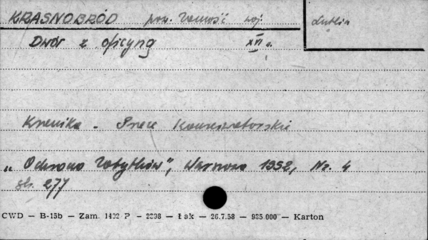 KRASNOBRÓD pow. Zamość woj. Lublin
Dwór z oficyną XVI w.
Kronika - Prace Konserwatorskie
"Ochrona Zabytków", Warszawa 1952, Nr. 4
str. 277
CWD — B-15b — Zam. 1432 P — 2238 — I sk — 26.7.58 — 935.000 — Karton